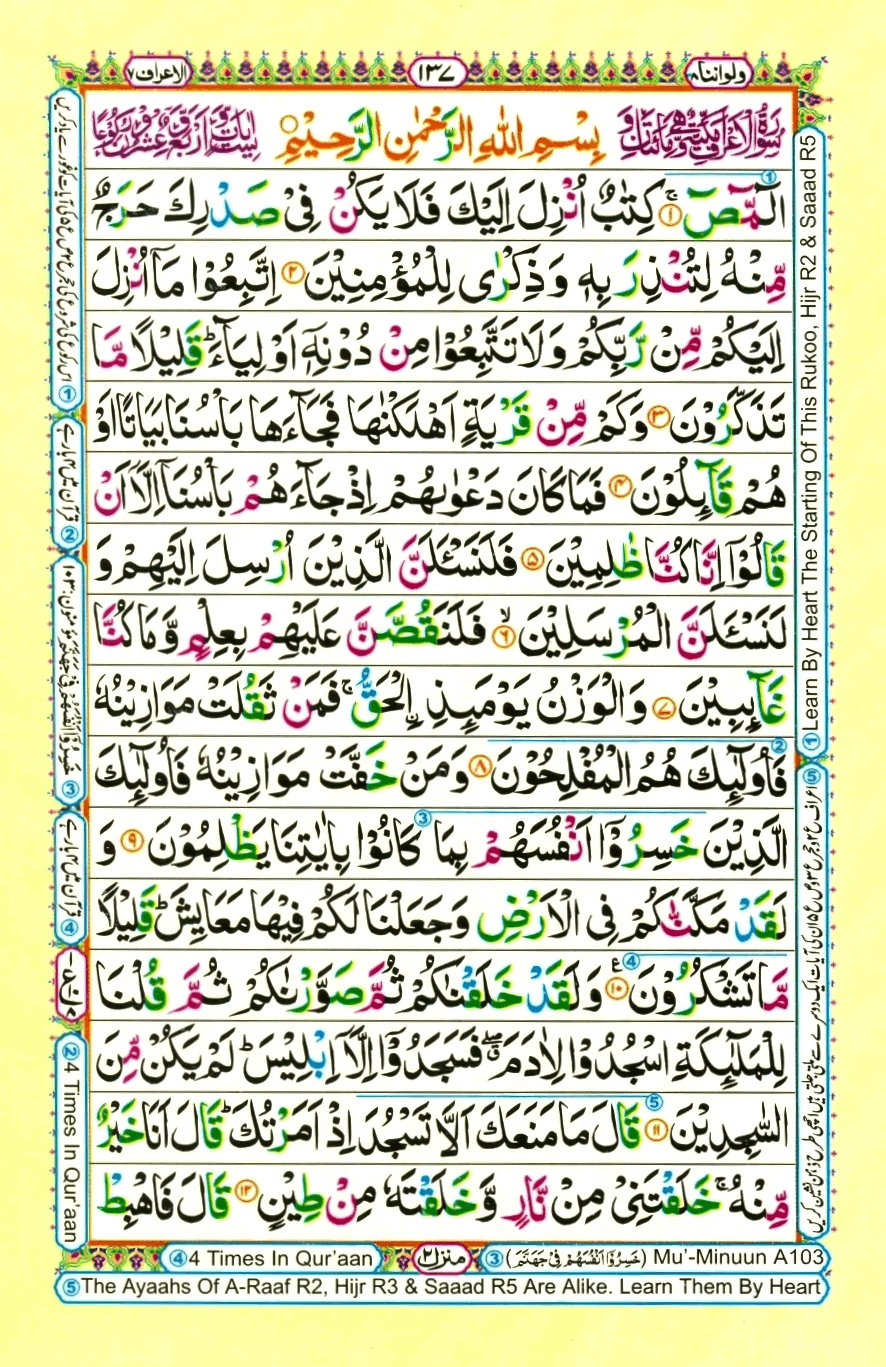 ولواننا ٨
١٣٧
الاعراف ٧
سُوْرَةُ الْاَعْرَافِ مَكِّيَّةٌ وَّهِيَ مِائَتَانِ وَّ
بِسْمِ اللهِ الرَّحْمٰنِ الرَّحِيْمِ
سِتُّ اٰيَاتٍ وَّاَرْبَعٌ وَّعِشْرُوْنَ رُكُوْعًا
الٓمّٓصٓ ۚ ① كِتٰبٌ اُنْزِلَ اِلَيْكَ فَلَا يَكُنْ فِيْ صَدْرِكَ حَرَجٌ
مِّنْهُ لِتُنْذِرَ بِهٖ وَذِكْرٰى لِلْمُؤْمِنِيْنَ ② اِتَّبِعُوْا مَآ اُنْزِلَ
اِلَيْكُمْ مِّنْ رَّبِّكُمْ وَلَا تَتَّبِعُوْا مِنْ دُوْنِهٖٓ اَوْلِيَآءَ ؕ قَلِيْلًا مَّا
تَذَكَّرُوْنَ ③ وَكَمْ مِّنْ قَرْيَةٍ اَهْلَكْنٰهَا فَجَآءَهَا بَاْسُنَا بَيَاتًا اَوْ
هُمْ قَآئِلُوْنَ ④ فَمَا كَانَ دَعْوٰىهُمْ اِذْ جَآءَهُمْ بَاْسُنَآ اِلَّآ اَنْ
قَالُوْٓا اِنَّا كُنَّا ظٰلِمِيْنَ ⑤ فَلَنَسْـَٔلَنَّ الَّذِيْنَ اُرْسِلَ اِلَيْهِمْ وَ
لَنَسْـَٔلَنَّ الْمُرْسَلِيْنَ ۙ ⑥ فَلَنَقُصَّنَّ عَلَيْهِمْ بِعِلْمٍ وَّمَا كُنَّا
غَآئِبِيْنَ ⑦ وَالْوَزْنُ يَوْمَئِذِ ِۨالْحَقُّ ۚ فَمَنْ ثَقُلَتْ مَوَازِيْنُهٗ
فَاُولٰٓئِكَ هُمُ الْمُفْلِحُوْنَ ⑧ وَمَنْ خَفَّتْ مَوَازِيْنُهٗ فَاُولٰٓئِكَ
الَّذِيْنَ خَسِرُوْٓا اَنْفُسَهُمْ بِمَا كَانُوْا بِاٰيٰتِنَا يَظْلِمُوْنَ ⑨ وَ
لَقَدْ مَكَّنّٰكُمْ فِي الْاَرْضِ وَجَعَلْنَا لَكُمْ فِيْهَا مَعَايِشَ ؕ قَلِيْلًا
مَّا تَشْكُرُوْنَ ⑩ وَلَقَدْ خَلَقْنٰكُمْ ثُمَّ صَوَّرْنٰكُمْ ثُمَّ قُلْنَا
لِلْمَلٰٓئِكَةِ اسْجُدُوْا لِاٰدَمَ ۖ فَسَجَدُوْٓا اِلَّآ اِبْلِيْسَ ؕ لَمْ يَكُنْ مِّنَ
السّٰجِدِيْنَ ⑪ قَالَ مَا مَنَعَكَ اَلَّا تَسْجُدَ اِذْ اَمَرْتُكَ ؕ قَالَ اَنَا خَيْرٌ
مِّنْهُ ۚ خَلَقْتَنِيْ مِنْ نَّارٍ وَّخَلَقْتَهٗ مِنْ طِيْنٍ ⑫ قَالَ فَاهْبِطْ
① Learn By Heart The Starting Of This Rukoo, Hijr R2 & Saaad R5
② قرآن میں ۴ بار ہے
③ خَسِرُوْٓا اَنْفُسَهُمْ فِيْ جَهَنَّمَ مؤمنون: ١٠٣
④ قرآن میں ۴ بار ہے
② 4 Times In Qur'aan
④ 4 Times In Qur'aan
منزل ٢
③ (خَسِرُوْٓا اَنْفُسَهُمْ فِيْ جَهَنَّمَ) Mu'-Minuun A103
⑤ The Ayaahs Of A-Raaf R2, Hijr R3 & Saaad R5 Are Alike. Learn Them By Heart